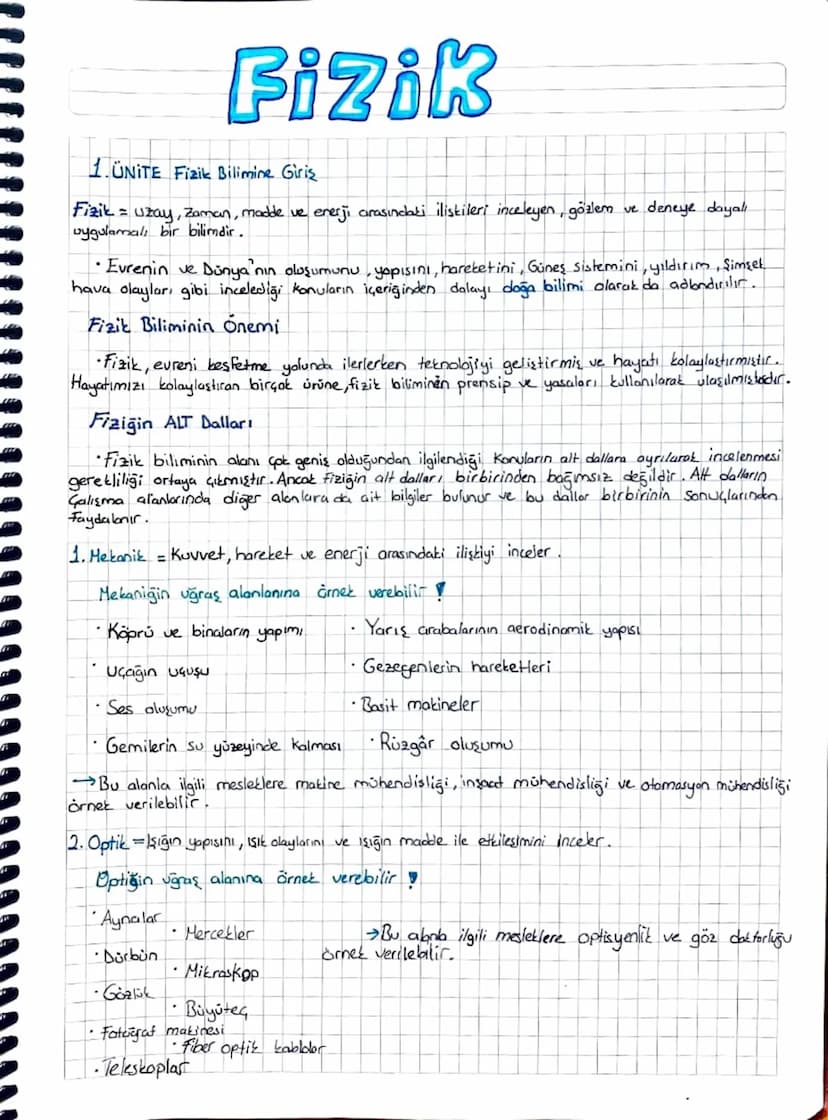 FiZiK
1. ÜNİTE Fizik Bilimine Giriş
Fizik = uzay, zaman, madde ve enerji arasındaki ilişkileri inceleyen, gözlem ve deneye dayalı
uygulamalı bir bilimdir.
• Evrenin ve Dünya'nın oluşumunu, yapısını, hareketini, Güneş sistemini, yıldırım, Şimşek
hava olayları gibi incelediği konuların içeriğinden dolayı doğa bilimi olarak da adlandırılır.
Fizik Biliminin Önemi
• Fizik, evreni keşfetme yolunda ilerlerken teknolojiyi geliştirmiş ve hayatı kolaylaştırmıştır.
Hayatımızı kolaylaştıran birçok ürüne, fizik biliminin prensip ve yasaları kullanılarak ulaşılmıştadır.
Fiziğin ALT Dalları
• Fizik biliminin alanı çok geniş olduğundan ilgilendiği konuların alt dallara ayrılarak incelenmesi
gerekliliği ortaya çıkmıştır. Ancak fiziğin alt dalları birbirinden bağımsız değildir. Alt dalların
Çalışma alanlarında diğer alanlara da ait bilgiler bulunur ve bu dallar birbirinin sonuçlarından
faydalanır.
1. Mekanik = Kuvvet, hareket ve enerji arasındaki ilişkiyi inceler.
Mekaniğin uğraş alanlanına örnek verebilir !
• Köprü ve binaların yapımı • Yarış arabalarının aerodinamik yapısı
• Uçağın uçuşu • Gezegenlerin hareketleri
• Ses oluşumu • Basit makineler
• Gemilerin su yüzeyinde kalması • Rüzgâr oluşumu
→ Bu alanla ilgili mesleklere makine mühendisliği, inşaat mühendisliği ve otomasyon mühendisliği
örnek verilebilir.
2. Optik = Işığın yapısını, ışık olaylarını ve ışığın madde ile etkileşimini inceler.
Optiğin uğraş alanına örnek verebilir !
• Aynalar
• Mercekler
• Dürbün
• Mikroskop
• Gözlük
• Büyüteç
• Fotoğraf makinesi
• Fiber optik kablolar
• Teleskoplar
→ Bu alanla ilgili mesleklere optisyenlik ve göz doktorluğu
örnek verilebilir.